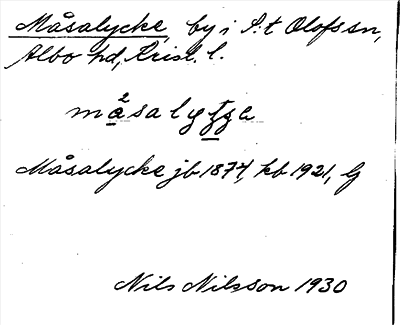 Måsalycke, by i S:t Olofs sn,
Albo hd, Krist. l.
må²salygge
Måsalycke jb 1874, kb 1921, G
Nils Nilsson 1930